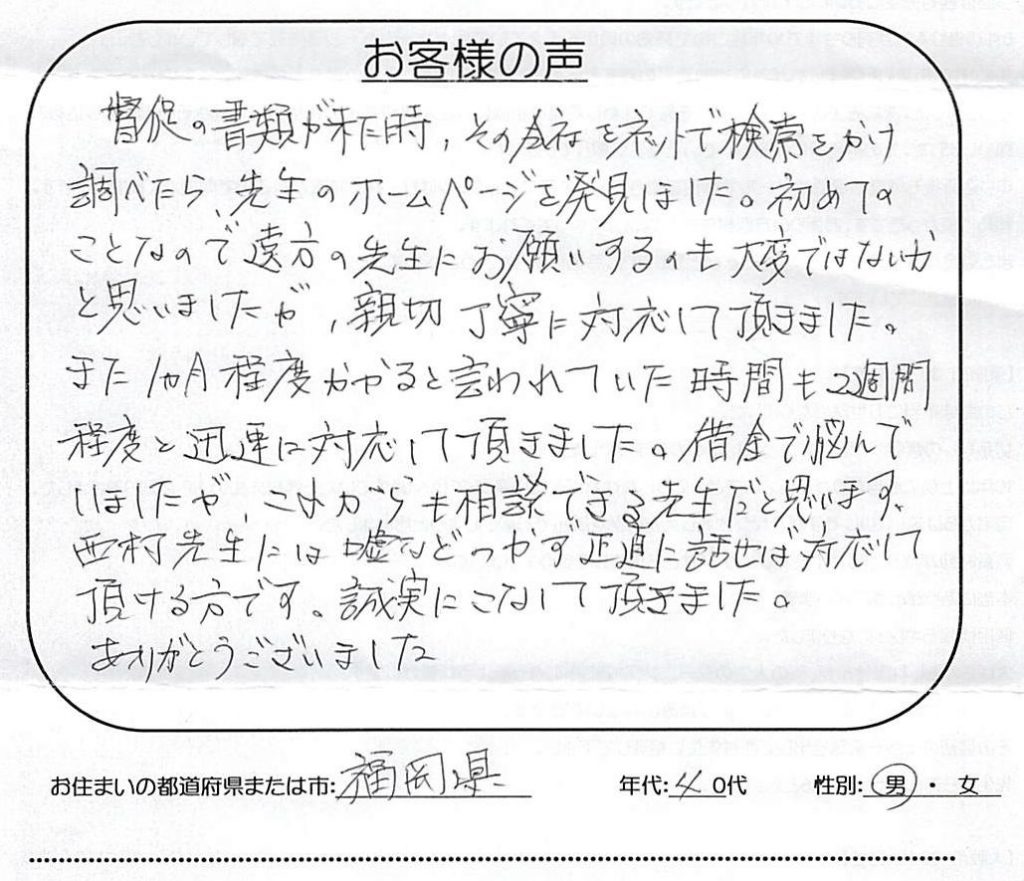 お客様の声
督促の書類が来た時，その会社をネットで検索をかけ
調べたら、先生のホームページを発見しました。初めての
ことなので遠方の先生にお願いするのも大変ではないか
と思いましたが，親切丁寧に対応して頂きました。
また1カ月程度かかると言われていた時間も2週間
程度と迅速に対応して頂きました。借金で悩んで
いましたが，これからも相談できる先生だと思います。
西村先生には嘘などつかず正直に話せば対応して
頂ける方です。誠実にこなして頂きました。
ありがとうございました
お住まいの都道府県または市:福岡県 年代:40代 性別:男・女